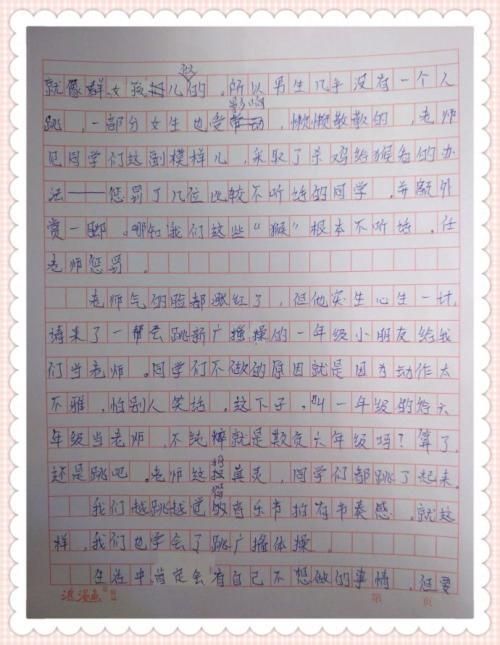 就像群女孩儿做的，所以男生几乎没有一个人
跳，一部分女生也受影响，懒懒散散的，老师
见同学们这副模样儿，采取了杀鸡给猴看的办
法——惩罚了几位比较不听话的同学，并额外
赏一脚，哪知我们这些“猴”根本不听话，任
老师惩罚。
老师气的脸都歌红了，但他突生心生一计，
请来了一帮会跳新广播操的一年级小朋友给我
们当老师，同学们不做的原因就是因为动作太
不雅，怕别人笑话，这下子，叫一年级的给六
年级当老师，不纯粹就是欺负六年级吗？算了，
还是跳吧。老师这招真灵，同学们都跳了起来。
我们越跳越觉得音乐节拍有节奏感，就这
样，我们也学会了跳广播体操。
生活中肯定会有自己不想做的事情，但要
浪漫屋
第 页